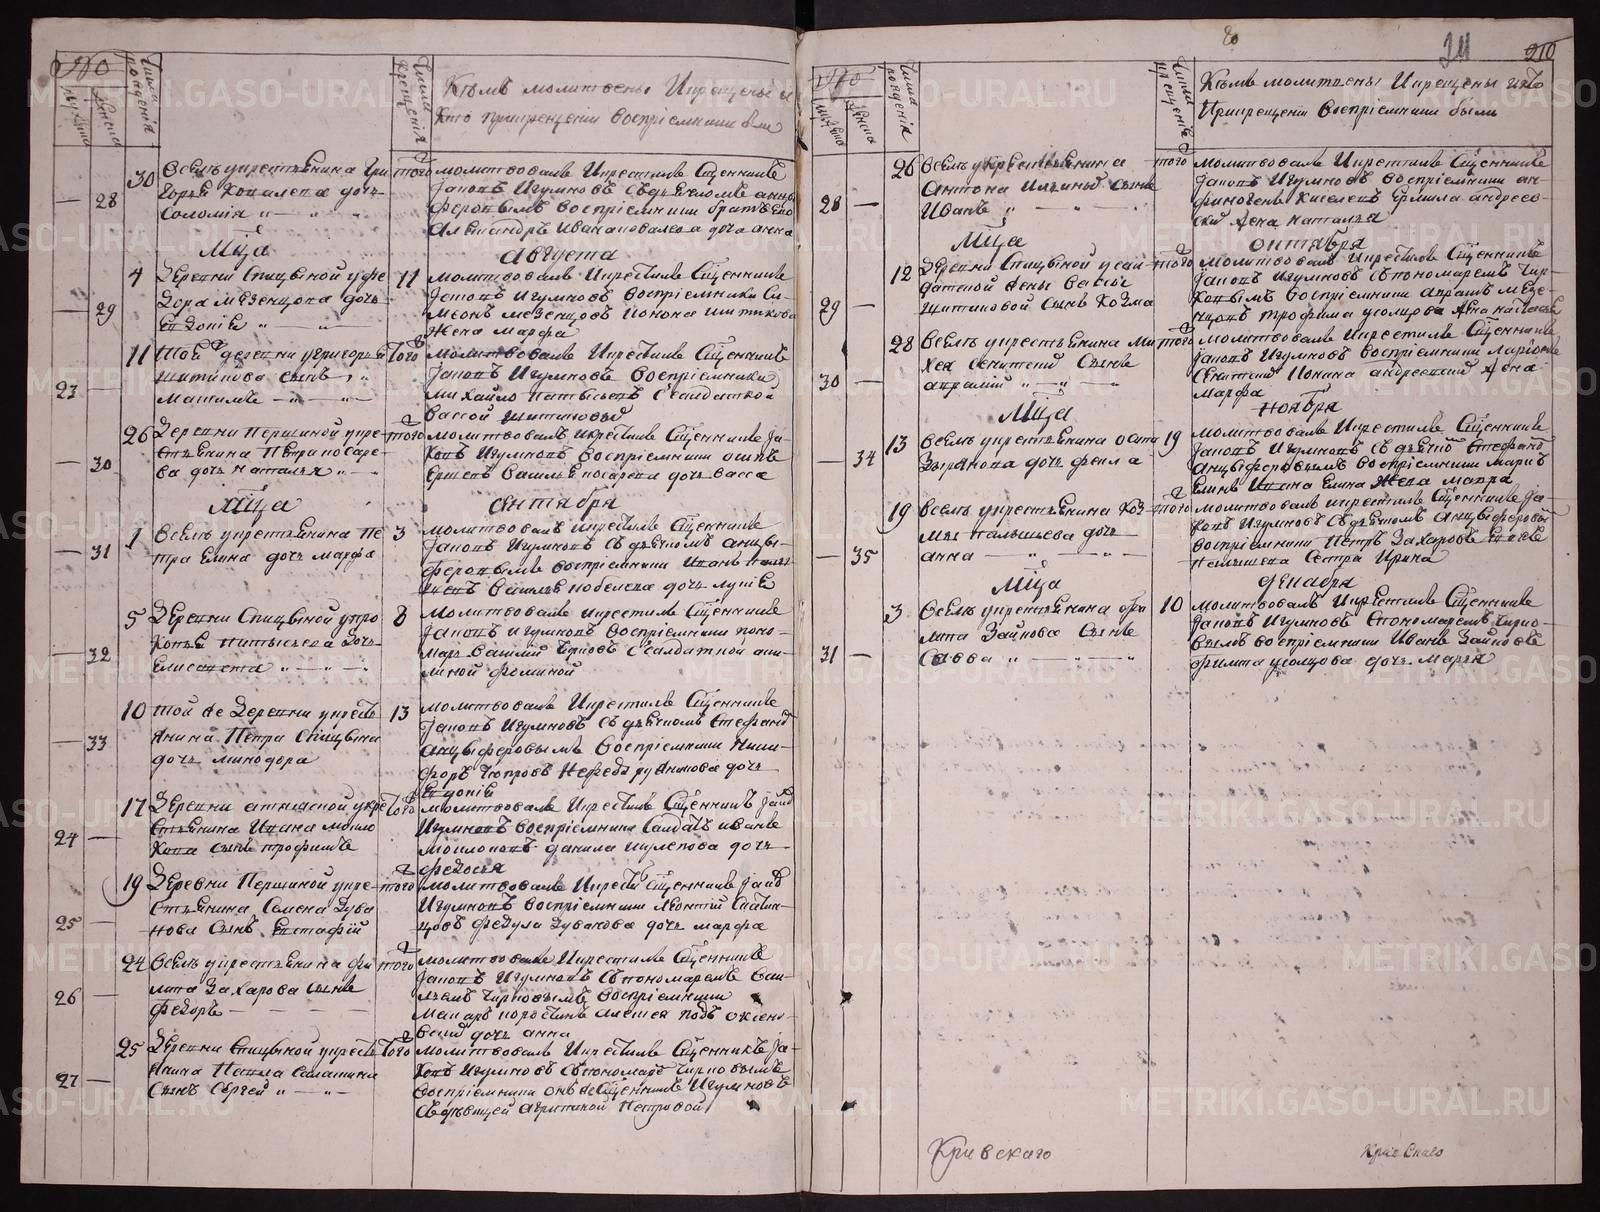 №
мужеска
женска
Числа рожденія
Числа крещенія
Кѣмъ молитвены И крещены и
Кто прикрещеніи Воспріемники были
28
30
Всемъ укрестьянина Гри
горья Ковалева дочь
Соломія
того
молитвовалъ Икрестилъ Сщенникъ
Іаковъ Игумновъ Съдьячкомъ анцы
феровымъ Воспріемники братъ его
Александръ Ивана ковалева дочь анна
Мца Августа
29
4
Деревни Спицыной уфе
дора мезенцова дочь
Евдокіе
11
молитвовалъ Икрестилъ Сщенникъ
Іаковъ Игумновъ Воспріемники Си-
меонъ мезенцовъ Іонона шитикова
Жена Марфа
23
11
Той же деревни угригорья
шитикова сынъ
Максимъ
Того
Молитвовалъ Икрестилъ Сщенникъ
Іаковъ Игумновъ Воспріемники
михайло Сысолдаткой
Вассой шитиковой
30
26
Деревни Першиной укре-
стьянина Петра косаре-
ва дочь наталья
того
молитвовалъ икрестилъ Сщенникъ Іа-
ковъ Игумновъ Воспріемники осипъ
Ершевъ Василья косарева дочь васса
Мца Сентября
31
1
Всемъ укрестьянина Пе
тра Елина дочь марфа
3
молитвовалъ икрестилъ Сщенникъ
Іаковъ Игумновъ Съдьячкомъ анцы-
феровымъ воспріемники Иванъ
Василья кобелева дочь лукіе
32
5
Деревни Спицыной упро
Копье дочь
Елисавета
8
Молитвовалъ икрестилъ Сщенникъ
Іаковъ игумновъ Воспріемники поно-
марь Василій Сысолдаткой аки-
линой фоминой
33
10
той же Деревни укресть
янина Петра Спицына
дочь минодора
13
молитвовалъ Икрестилъ Сщенникъ
Іаковъ Игумновъ Съ дьячкомъ Стефаномъ
анцыферовымъ Воспріемники Ники-
форъ дочь
Евдокіе
24
17
Деревни укре
стьянина Ивана моило
Кова сынъ трофимъ
Того
молитвовалъ Икрестилъ Сщенникъ Іаковъ
Игумновъ Воспріемники Салдатъ иванъ
Моилоковъ данила шулепова дочь
федосья
25
19
Деревни Першиной укре-
стьянина Семена Зува
нова Сынъ Евстафій
того
молитвовалъ Икрестилъ Сщенникъ Іаковъ
Игумновъ Воспріемники Леонтій
федула Зуванова дочь марфа
26
24
Всемъ укрестьянина фи
липа Захарова сынъ
федоръ
того
молитвовалъ Икрестилъ Сщенникъ
Іаковъ Игумновъ Съпономаремъ Васи-
льемъ Чирковымъ Воспріемники
Макаръ коростинъ Алексея
дочь анна
27
25
Деревни Спицыной укресть
янина Павла Салатина
Сынъ Сергей
Того
молитвовалъ Икрестилъ Сщенникъ Іа-
ковъ Игумновъ Съпономаремъ Чирковымъ
воспріемники онъ же Сщенникъ Игумновъ
Съдѣвицей агрипиной Петровой
80
211
210
№
мужеска
женска
Числа рожденія
Числа крещенія
Кѣмъ молитвены И крещены икто
Прикрещеніи Воспріемники были
28
26
Всемъ укрестьянина
Антона Сынъ
Иванъ
того
молитвовалъ Икрестилъ Сщенникъ
Іаковъ Игумновъ воспріемники ан-
финогенъ Киселевъ Ермила андреев-
ской жена наталья
Мца октября
29
12
Деревни Спицыной усол-
датской жены Васы
шитиковой Сынъ Козма
того
молитвовалъ Икрестилъ Сщенникъ
Іаковъ Игумновъ Съпономаремъ Чир-
ковымъ воспріемники авраамъ мезе-
нцовъ трофима усолцова жена наталья
30
28
Всемъ укрестьянина Ми
хея Сынъ
авраамій
того
молитвовалъ Икрестилъ Сщенникъ
Іаковъ Игумновъ Воспріемники Ларіонъ
Іонина андреевской жена
марфа
Мца ноября
34
13
Всемъ укрестьянина осипа
Зырянова дочь фекла
19
молитвовалъ Икрестилъ Сщенникъ
Іаковъ Игумновъ Съ дьячкомъ Стефаномъ
Анцыферовымъ Воспріемники маркъ
Елинъ Ивана Елина Жена мавра
35
19
Всемъ укрестьянина Коз-
мы палышева дочь
анна
того
молитвовалъ икрестилъ Сщенникъ Іа-
ковъ Игумновъ Съдьячкомъ Анцыферовымъ
воспріемники Петръ Захаровъ
Палышева Сестра Ирина
Мца декабря
31
3
Всемъ укрестьянина фи
липа Зайкова Сынъ
Савва
10
молитвовалъ Икрестилъ Сщенникъ
Іаковъ Игумновъ Спономаремъ Чирко-
вымъ воспріемники Иванъ Зайковъ
филипа усолцова дочь марья
Кривскаго
Кривскаго
METRIKI.GASO-URAL.RU